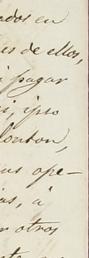 ados en
es de ellos,
pagar
ipso
louton,
us ope-
as, a
r otros